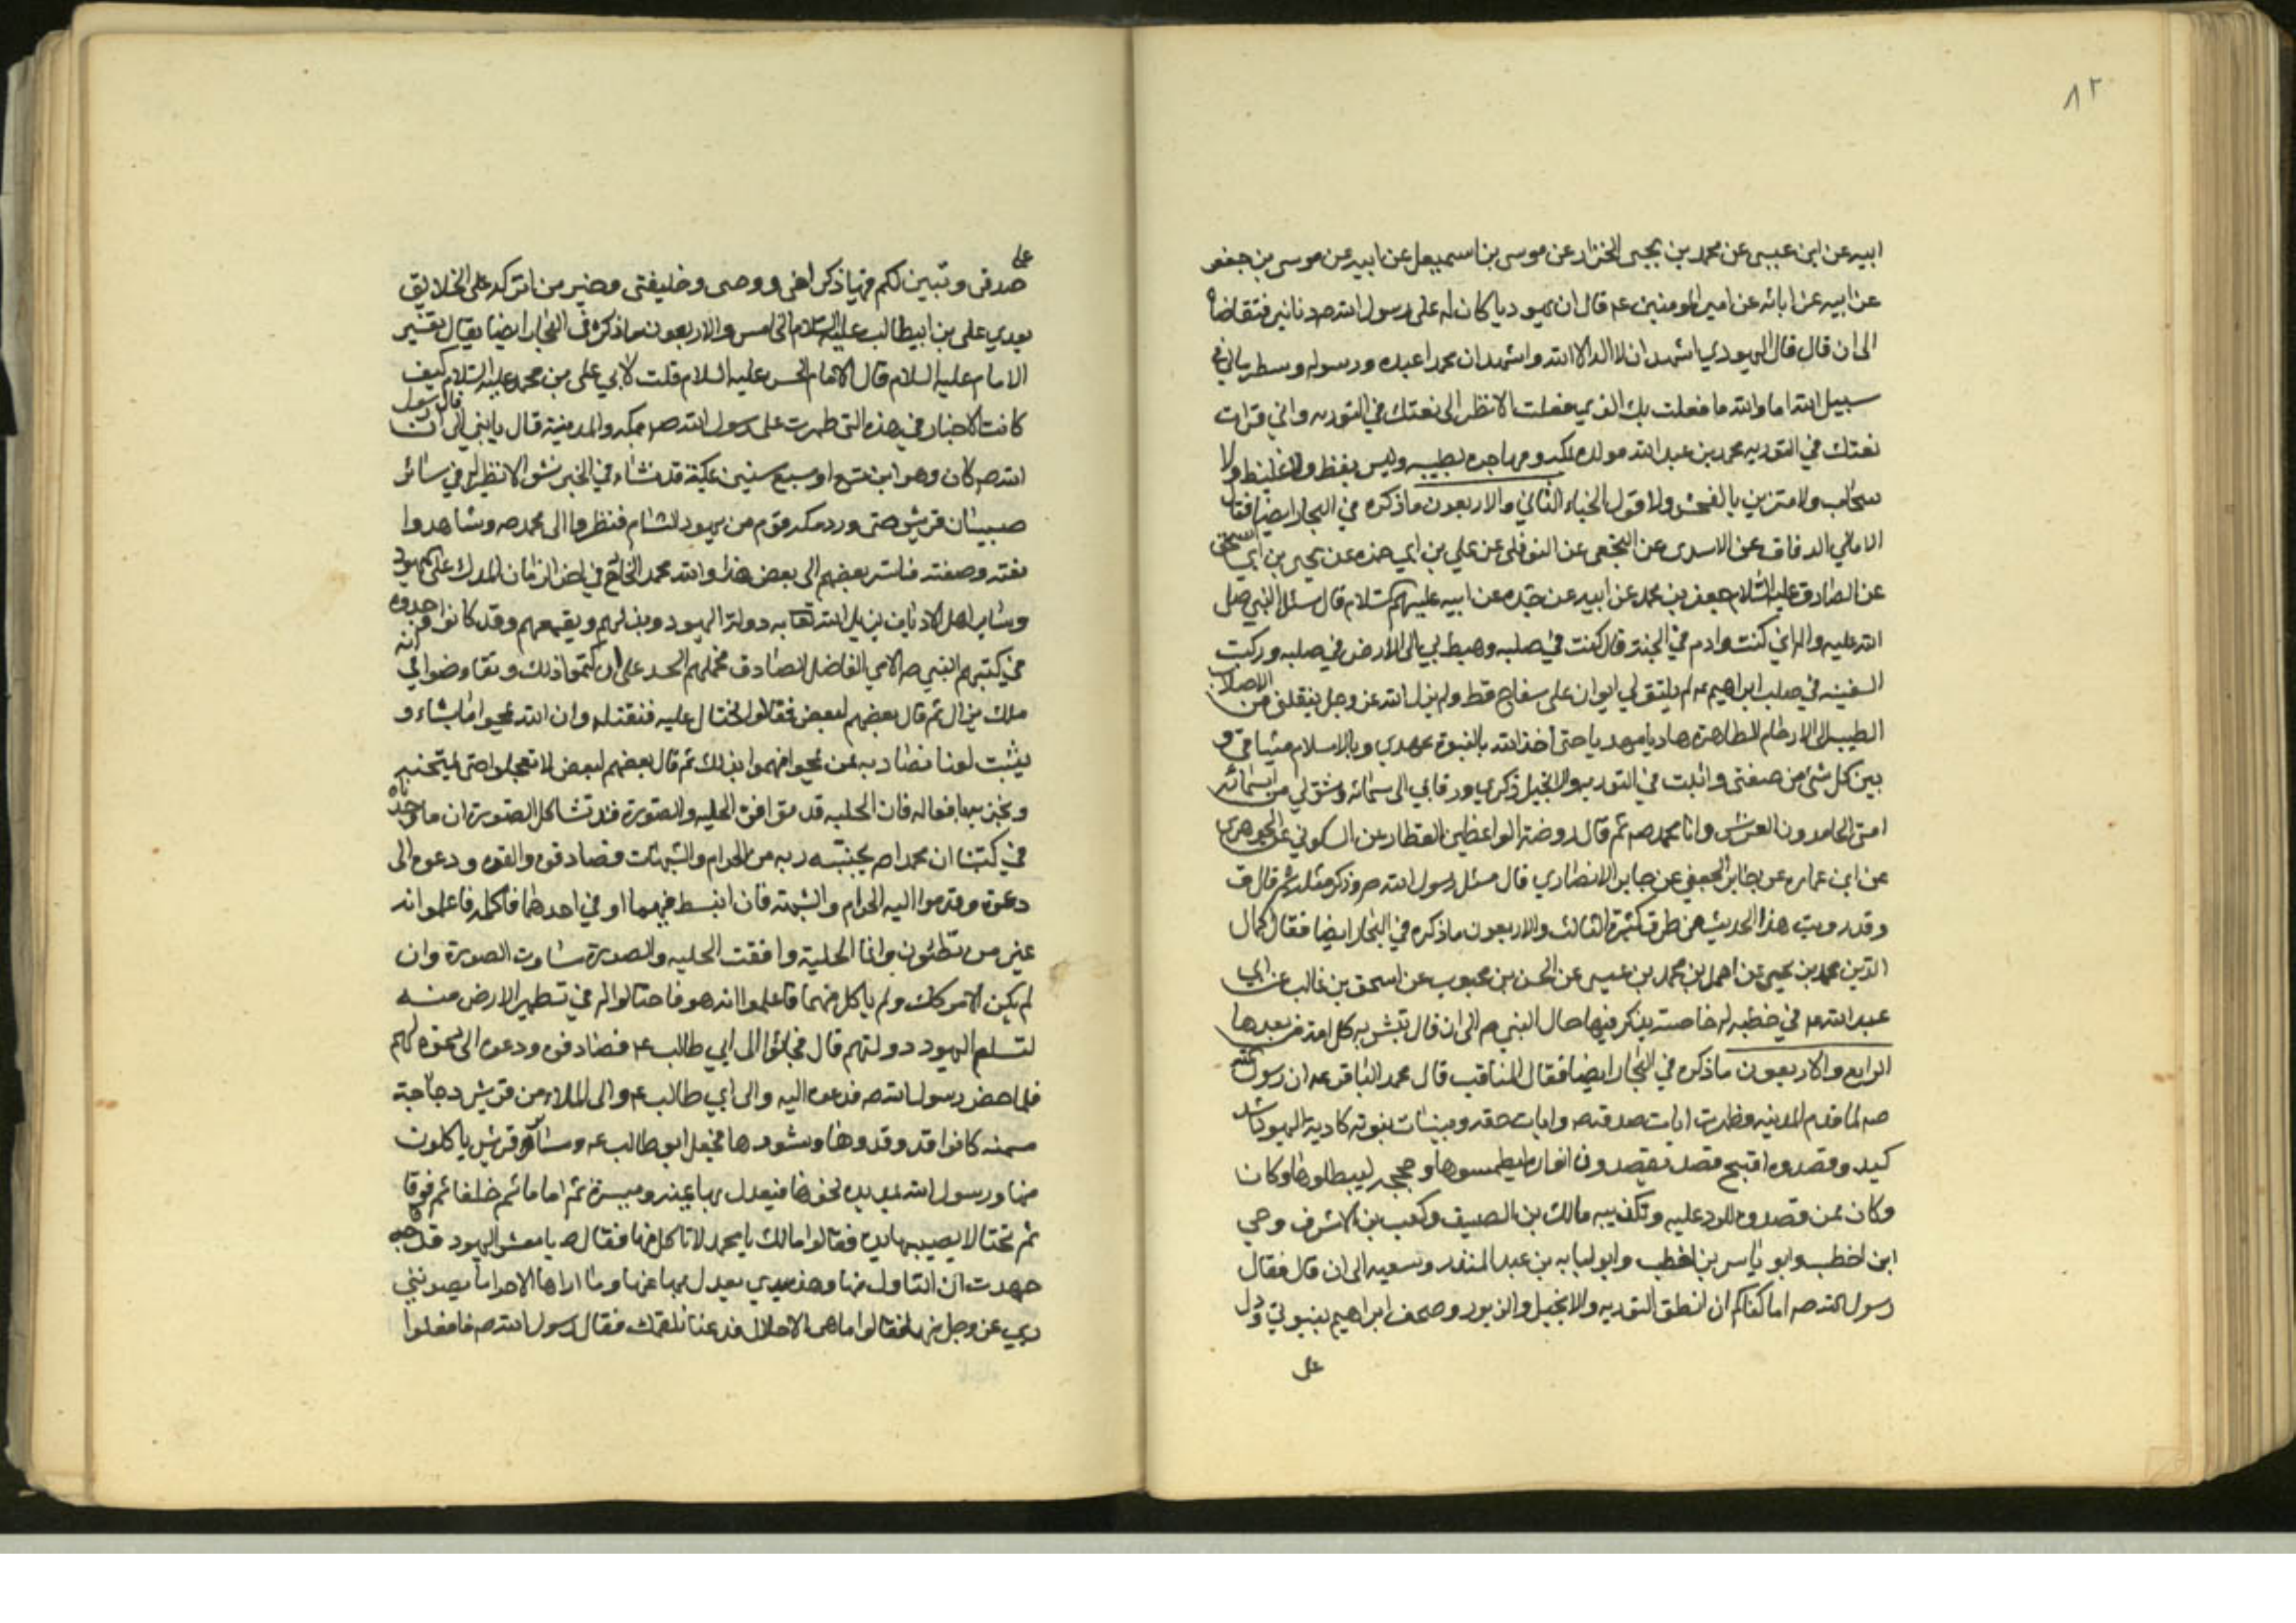 ٨٢
ابيه عن ابن عيسى عن محمد بن يحيى الخزاز عن موسى بن اسمعيل عن ابيه عن موسى بن جعفر
عن ابيه عن ابائه عن امير المومنين عه قال ان يهوديا كان له على رسول الله صه دنانير فتقاضاه
الى ان قال قال اليهودي اشهد ان لا اله الا الله واشهد ان محمدا عبده ورسوله وسطر مالي في
سبيل الله اما والله ما فعلت بك الذي فعلت الا لانظر الى نعتك في التوريه واني قرات
نعتك في التوريه محمد بن عبد الله مولده بمكه ومهاجره بطيبه وليس بفظ ولا غليظ ولا
سخاب ولا متزين بالفحش ولا قول الخناء الثاني والاربعون ماذكره في البحار ايضا فقال
الامالي الدقاق عن الاسدي عن النخعي عن النوفلي عن علي بن ابي حمزه عن يحيى بن ابي اسحق
عن الصادق عليه السلام جعفر بن محمد عن ابيه عن جده عن ابيه عليهم السلام قال سئل النبي صلى
الله عليه واله اني كنت وادم في الجنة قال كنت في صلبه وهبط بي الى الارض في صلبه وركبت
السفينه في صلب ابراهيم عه لم يلتق لي ابوان على سفاح قط ولم يزل الله عز وجل ينقلني من الاصلاب
الطيبه الى الارحام الطاهرة هاديا مهديا حتى اخذ الله بالنبوة عهدي وبالاسلام ميثاقي و
بين كل شئ من صفتي واثبت في التوريه والانجيل ذكري ورقا بي الى سمائه وشق لي من اسمائه
امتي الحامدون العرش وانا محمد صه ثم قال روضة الواعظين القطار عن السكوني عن الجوهري
عن ابن عماره عن جابر الجعفي عن جابر الانصاري قال سئل رسول الله صه وذكر مثله ثم قال ف
وقد رويت هذا الحديث من طرق كثيرة الثالث والاربعون ماذكره في البحار ايضا فقال كمال
الدين محمد بن يحيى عن احمد بن محمد بن عيسى عن الحسن بن محبوب عن اسحق بن غالب عن ابي
عبد الله عه في خطبه له خاصه يذكر فيها حال النبي صه الى ان قال تبشر به كل امة من بعدها
الرابع والاربعون ماذكره في البحار ايضا فقال المناقب قال محمد الباقر عه ان رسول الله
صه لما قدم المدينه وظهرت ايات صدقه وايات حقه وبينات نبوته كادته اليهود اشد
كيد وقصدوه اقبح قصد يقصدون انواره ليطمسوها وحججه ليبطلوها وكان
وكان ممن قصدوه للرد عليه وتكذيبه مالك بن الصيف وكعب بن الاشرف وحي
ابن اخطب وابو ياسر بن اخطب وابو لبابه بن عبد المنذر وسعيه الى ان قال فقال
رسول الله صه اما كفاكم ان انطق التوريه والانجيل والزبور وصحف ابراهيم بنبوتي ودل
على
على
صدقي وتبين لكم فيها ذكر اخي ووصي وخليفتي وخير من اتركه على الخلايق
بعدي علي بن ابيطالب عليه السلام الخامس والاربعون ماذكره في البحار ايضا يقال تفسير
الامام عليه السلام قال الامام الحسن عليه السلام قلت لابي علي بن محمد عليه السلام كيف
كانت الاخبار في هذه التي ظهرت على رسول الله صه بمكه والمدينة قال يابني ان رسول
الله صه كان وهو ابن ست او سبع سنين بمكة قد نشاء في الخير نشو لا نظير له في سائر
صبيان قريش حتى ورد مكه قوم من يهود الشام فنظروا الى محمد صه وشاهدوا
نعته وصفته فاسر بعضهم الى بعض هذا والله محمد الخارج في اخر الزمان المدل على اليهود
وساير اهل الاديان يزيل الله تعا به دولة اليهود ويذلهم ويقمعهم وقد كانوا وجدوه
في كتبهم النبي صه الامي الفاضل الصادق فحملهم الحسد على ان كتموا ذلك وتفاوضوا في انه
ملك يزال ثم قال بعضهم لبعض فقالوا نحتال عليه فنقتله وان الله يمحو ما يشاء و
يثبت لعلنا نصادفه ممن يمحو فهموا بذلك ثم قال بعضهم لبعض لا تعجلوا حتى نمتحنه
ونجربه بافعاله فان الحليه قد توافق الحليه والصورة قد تشاكل الصورة ان ما وجدناه
في كتبنا ان محمدا صه يجنبه ربه من الحرام والشبهات فصادفوه والقوه ودعوه الى
دعوة وقدموا اليه الحرام والشبهة فان انبسط فيهما او في احدهما فاكله فاعلموا انه
غير من تظنون وانما الحلية وافقت الحليه والصورة ساوت الصورة وان
لم يكن الامر كك ولم ياكل منهما فاعلموا انه هو فاحتالوا له في تطهير الارض منه
لتسلم اليهود دولتهم قال فجاؤا الى ابي طالب عه فصادفوه ودعوه الى دعوه لهم
فلما حضر رسول الله صه قدموا اليه والى ابي طالب عه والى الملاء من قريش دجاجة
مسمنه كانوا قد وقذوها وشووها فجعل ابو طالب عه وسائر قريش ياكلون
منها ورسول الله يمد يده نحوها فيعدل بها يمنه ويسرة ثم اماما ثم خلفا ثم فوقا
ثم تحتا لا يصيبها يده فقالوا مالك يا محمد لا تاكل منها فقال صه يا معشر اليهود قد
جهدت ان اتناول منها وهذه يدي يعدل بها عنها وما اراها الا حراما يصونني
ربي عز وجل منها فقالوا ما هي الا حلال فدعنا نلقمك فقال رسول الله صه فافعلوا